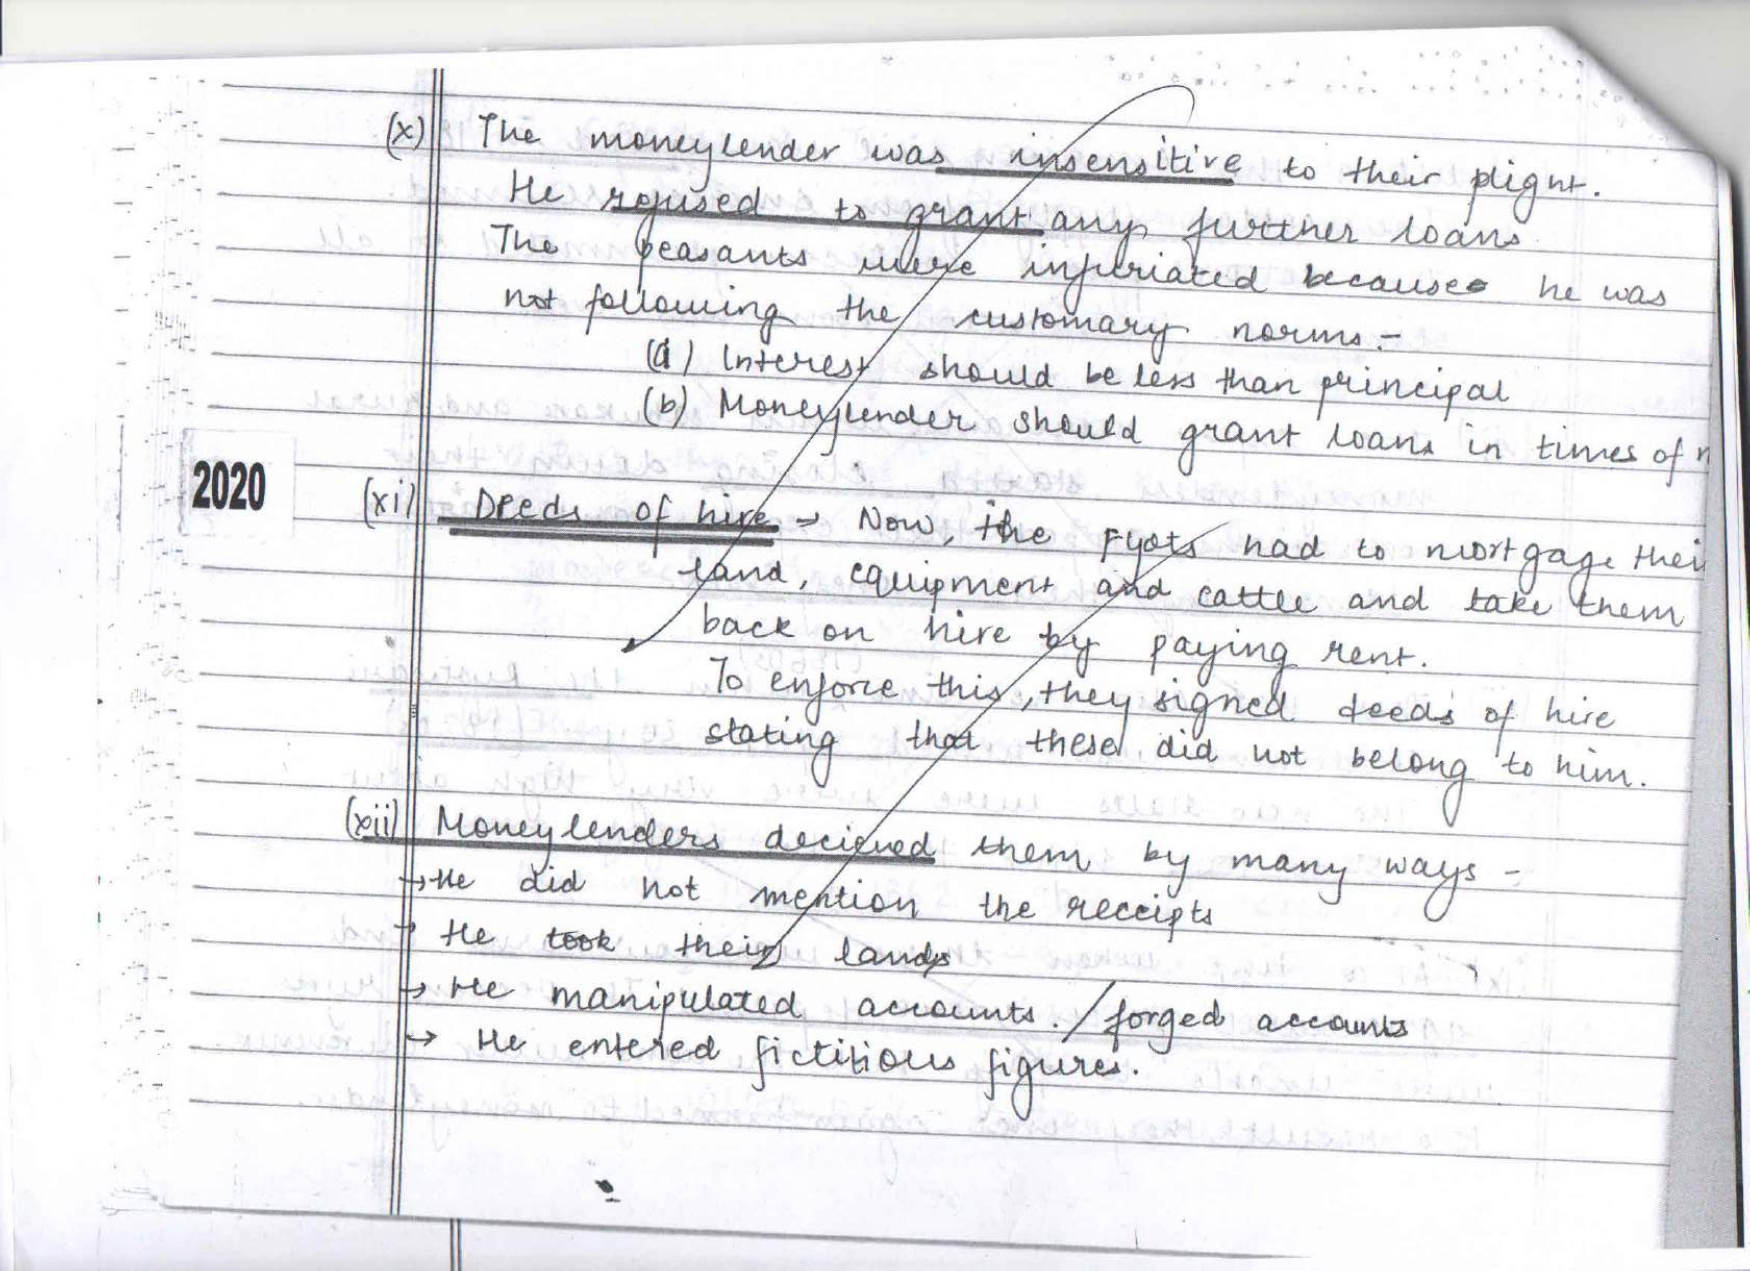 (x) The moneylender was insensitive to their plight.
He refused to grant any further loans
The peasants were infuriated because he was
not following the customary norms :-
(a) Interest should be less than principal
(b) Moneylender should grant loans in times of
2020
(xi) Deeds of hire → Now, the ryots had to mortgage their
land, equipment and cattle and take them
back on hire by paying rent.
To enforce this, they signed deeds of hire
stating that these did not belong to him.
(xii) Moneylenders decieved them by many ways -
→ He did not mention the receipts
→ He took their lands
→ He manipulated accounts. / forged accounts
→ He entered fictitious figures.